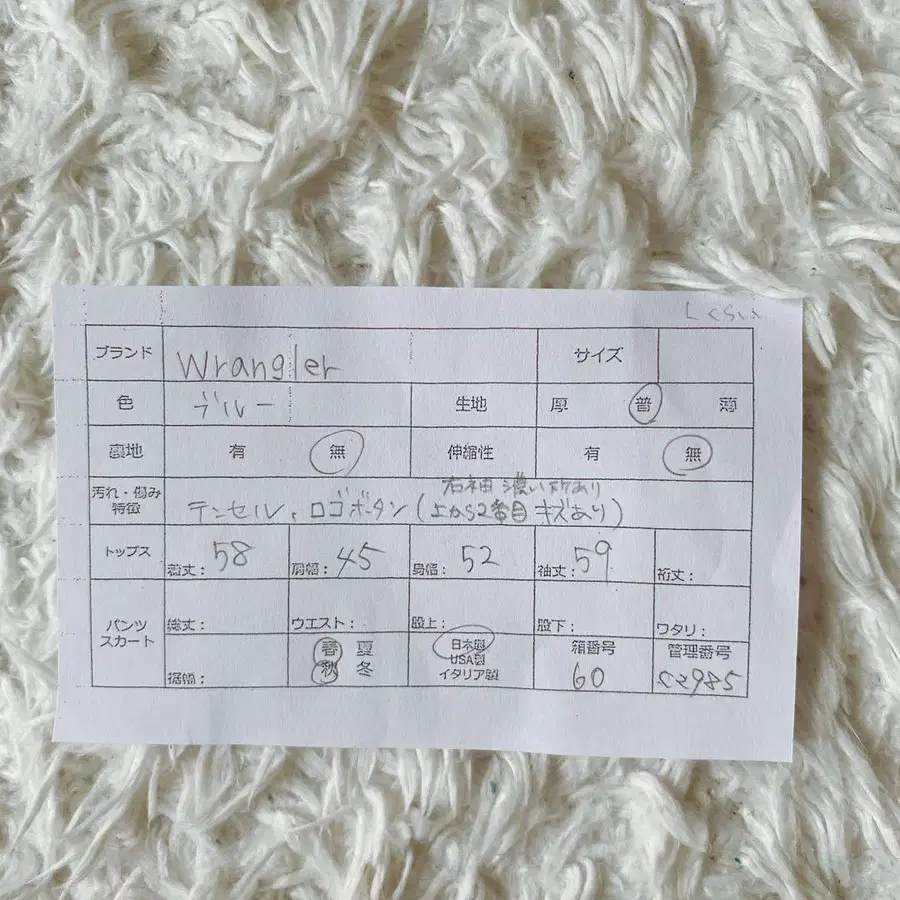 Lくらい
ブランド Wrangler サイズ
色 ブルー 生地 厚 普 薄
裏地 有 無 伸縮性 有 無
汚れ・傷み 右袖 濃い所あり
特徴 テンセル、ロゴボタン(上から2番目 キズあり)
トップス 着丈: 58 肩幅: 45 身幅: 52 袖丈: 59 裄丈:
パンツ 総丈: ウエスト: 股上: 股下: ワタリ:
スカート
裾幅: 春 夏 日本製 箱番号 管理番号
秋 冬 USA製 60
イタリア製